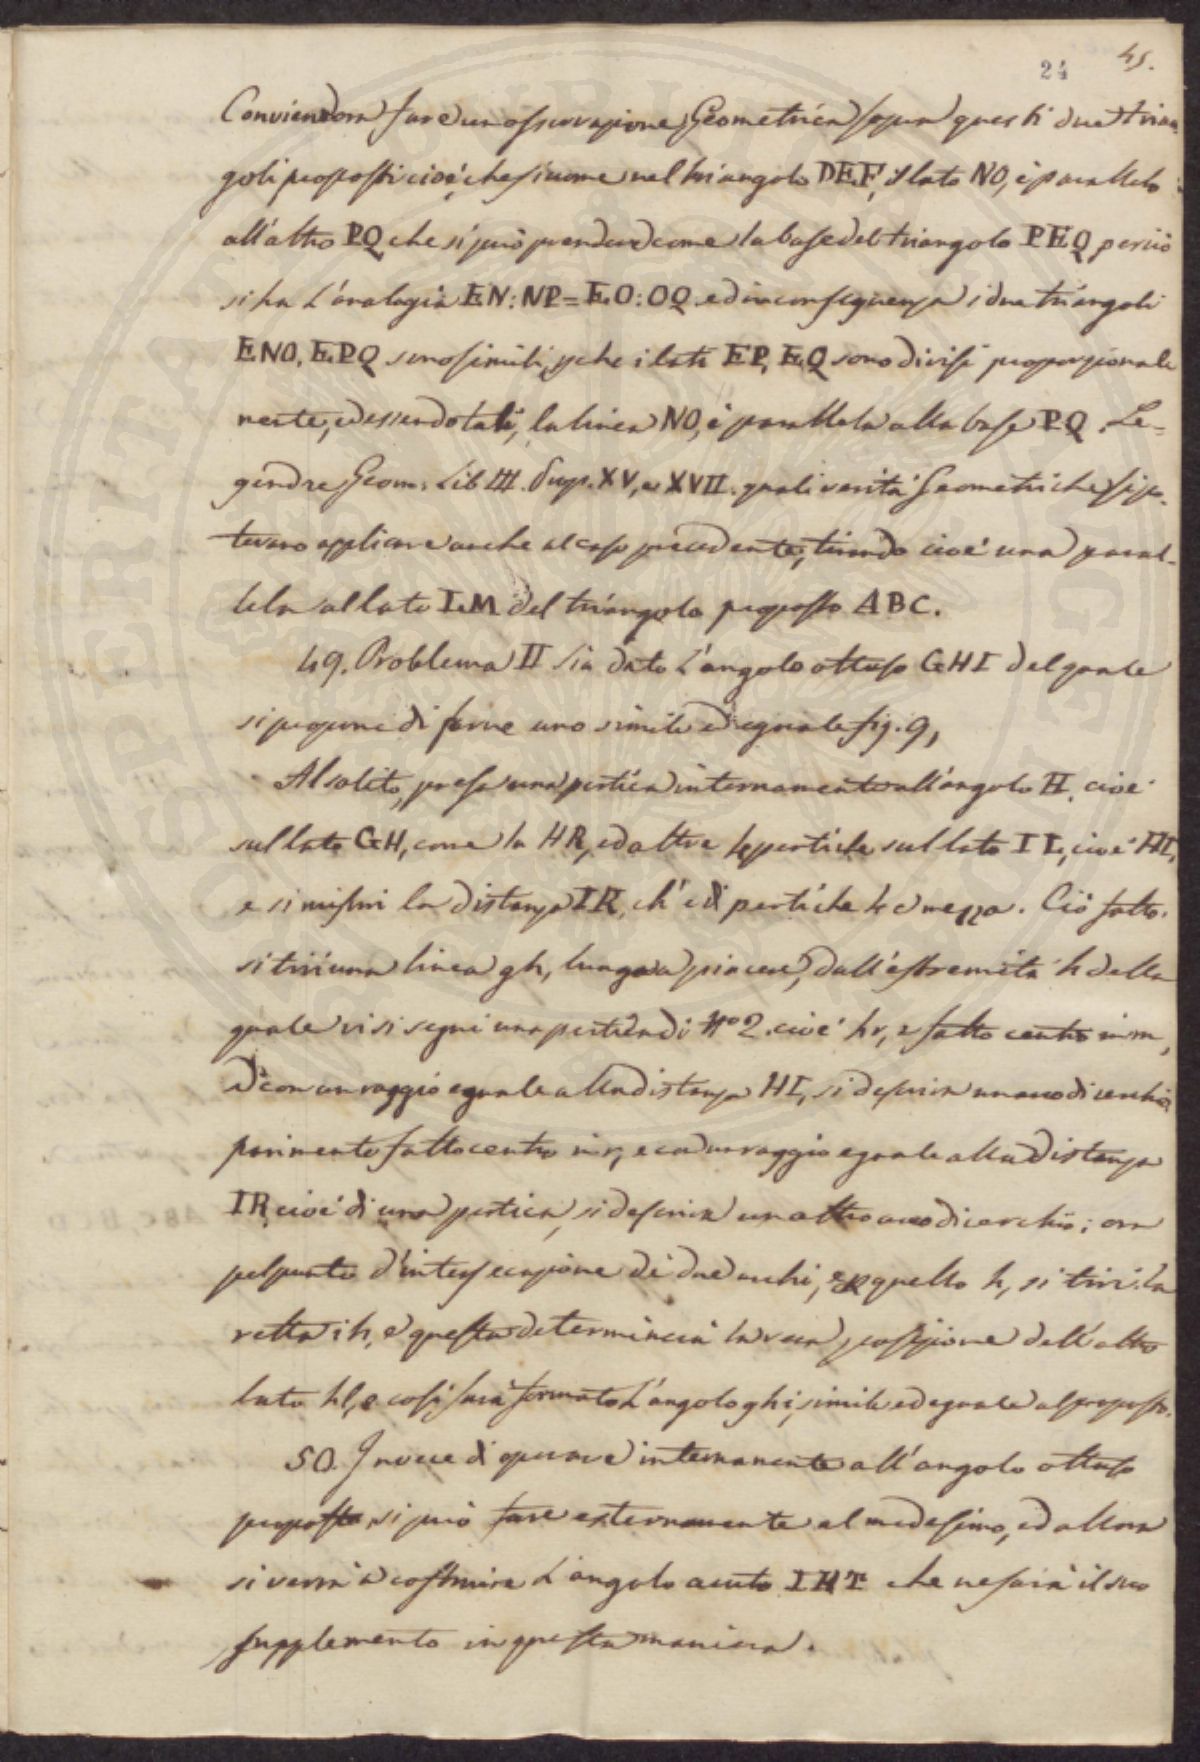 24 45.
Conviendora fare un osservazione Geometrica sopra questi due trian
goli proposti cioè, che siccome nel triangolo DEF, il lato NO, è parallelo
all'altro PQ che si può prendere come la base del triangolo PEQ perciò
si ha l'analogia EN:NP=EO:OQ. ed in conseguenza i due triangoli
ENO, EPQ sono simili, e che i lati EP, EQ sono divisi proporzionale
mente, ed essendo tali, la linea NO, è parallela alla base PQ. Le=
gendre, Geom: Lib III. Prop. XV, e XVII. quali verità Geometriche si po-
tevano applicare anche al caso precedente, tirando cioè una paral-
lela al lato LM del triangolo proposto ABC.
49. Problema II Sia dato l'angolo ottuso GHI del quale
si propone di farne uno simile ed eguale fig. 9,
Al solito, presa una pertica internamente all'angolo H, cioè
sul lato GH, come la HR, ed altre 4 pertiche sul lato IL, cioè HI,
e si misuri la distanza IR, ch'è di pertiche 4 e mezza. Ciò fatto.
si tiri una linea gh, lunga a piacere, dall'estremità h della
quale vi si segni una pertica di No 2. cioè hr, e fatto centro in m,
e con un raggio eguale alla distanza HI, si descriva un arco di cerchio,
parimente fatto centro in r, e con un raggio eguale alla distanza
IR, cioè di una pertica, si descriva un altro arco di cerchio; ora
pel punto d'intersecazione de due archi, e quello h, si tiri la
retta ih, e questa determinerà la vera posizione dell'altro
lato hl, e così sarà formato l'angolo ghi, simile ed eguale al proposto.
50. Invece di operare internamente all'angolo ottuso
proposto si può fare esternamente al medesimo, ed allora
si verrà a costruire l'angolo acuto IHT che ne sarà il suo
supplemento in questa maniera.